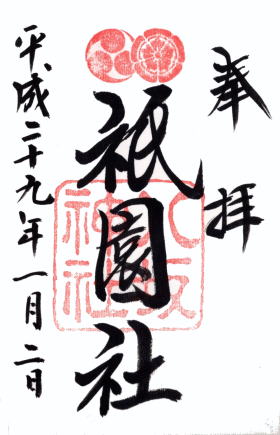 奉拝
八坂神社
祇園社
平成二十九年一月二日